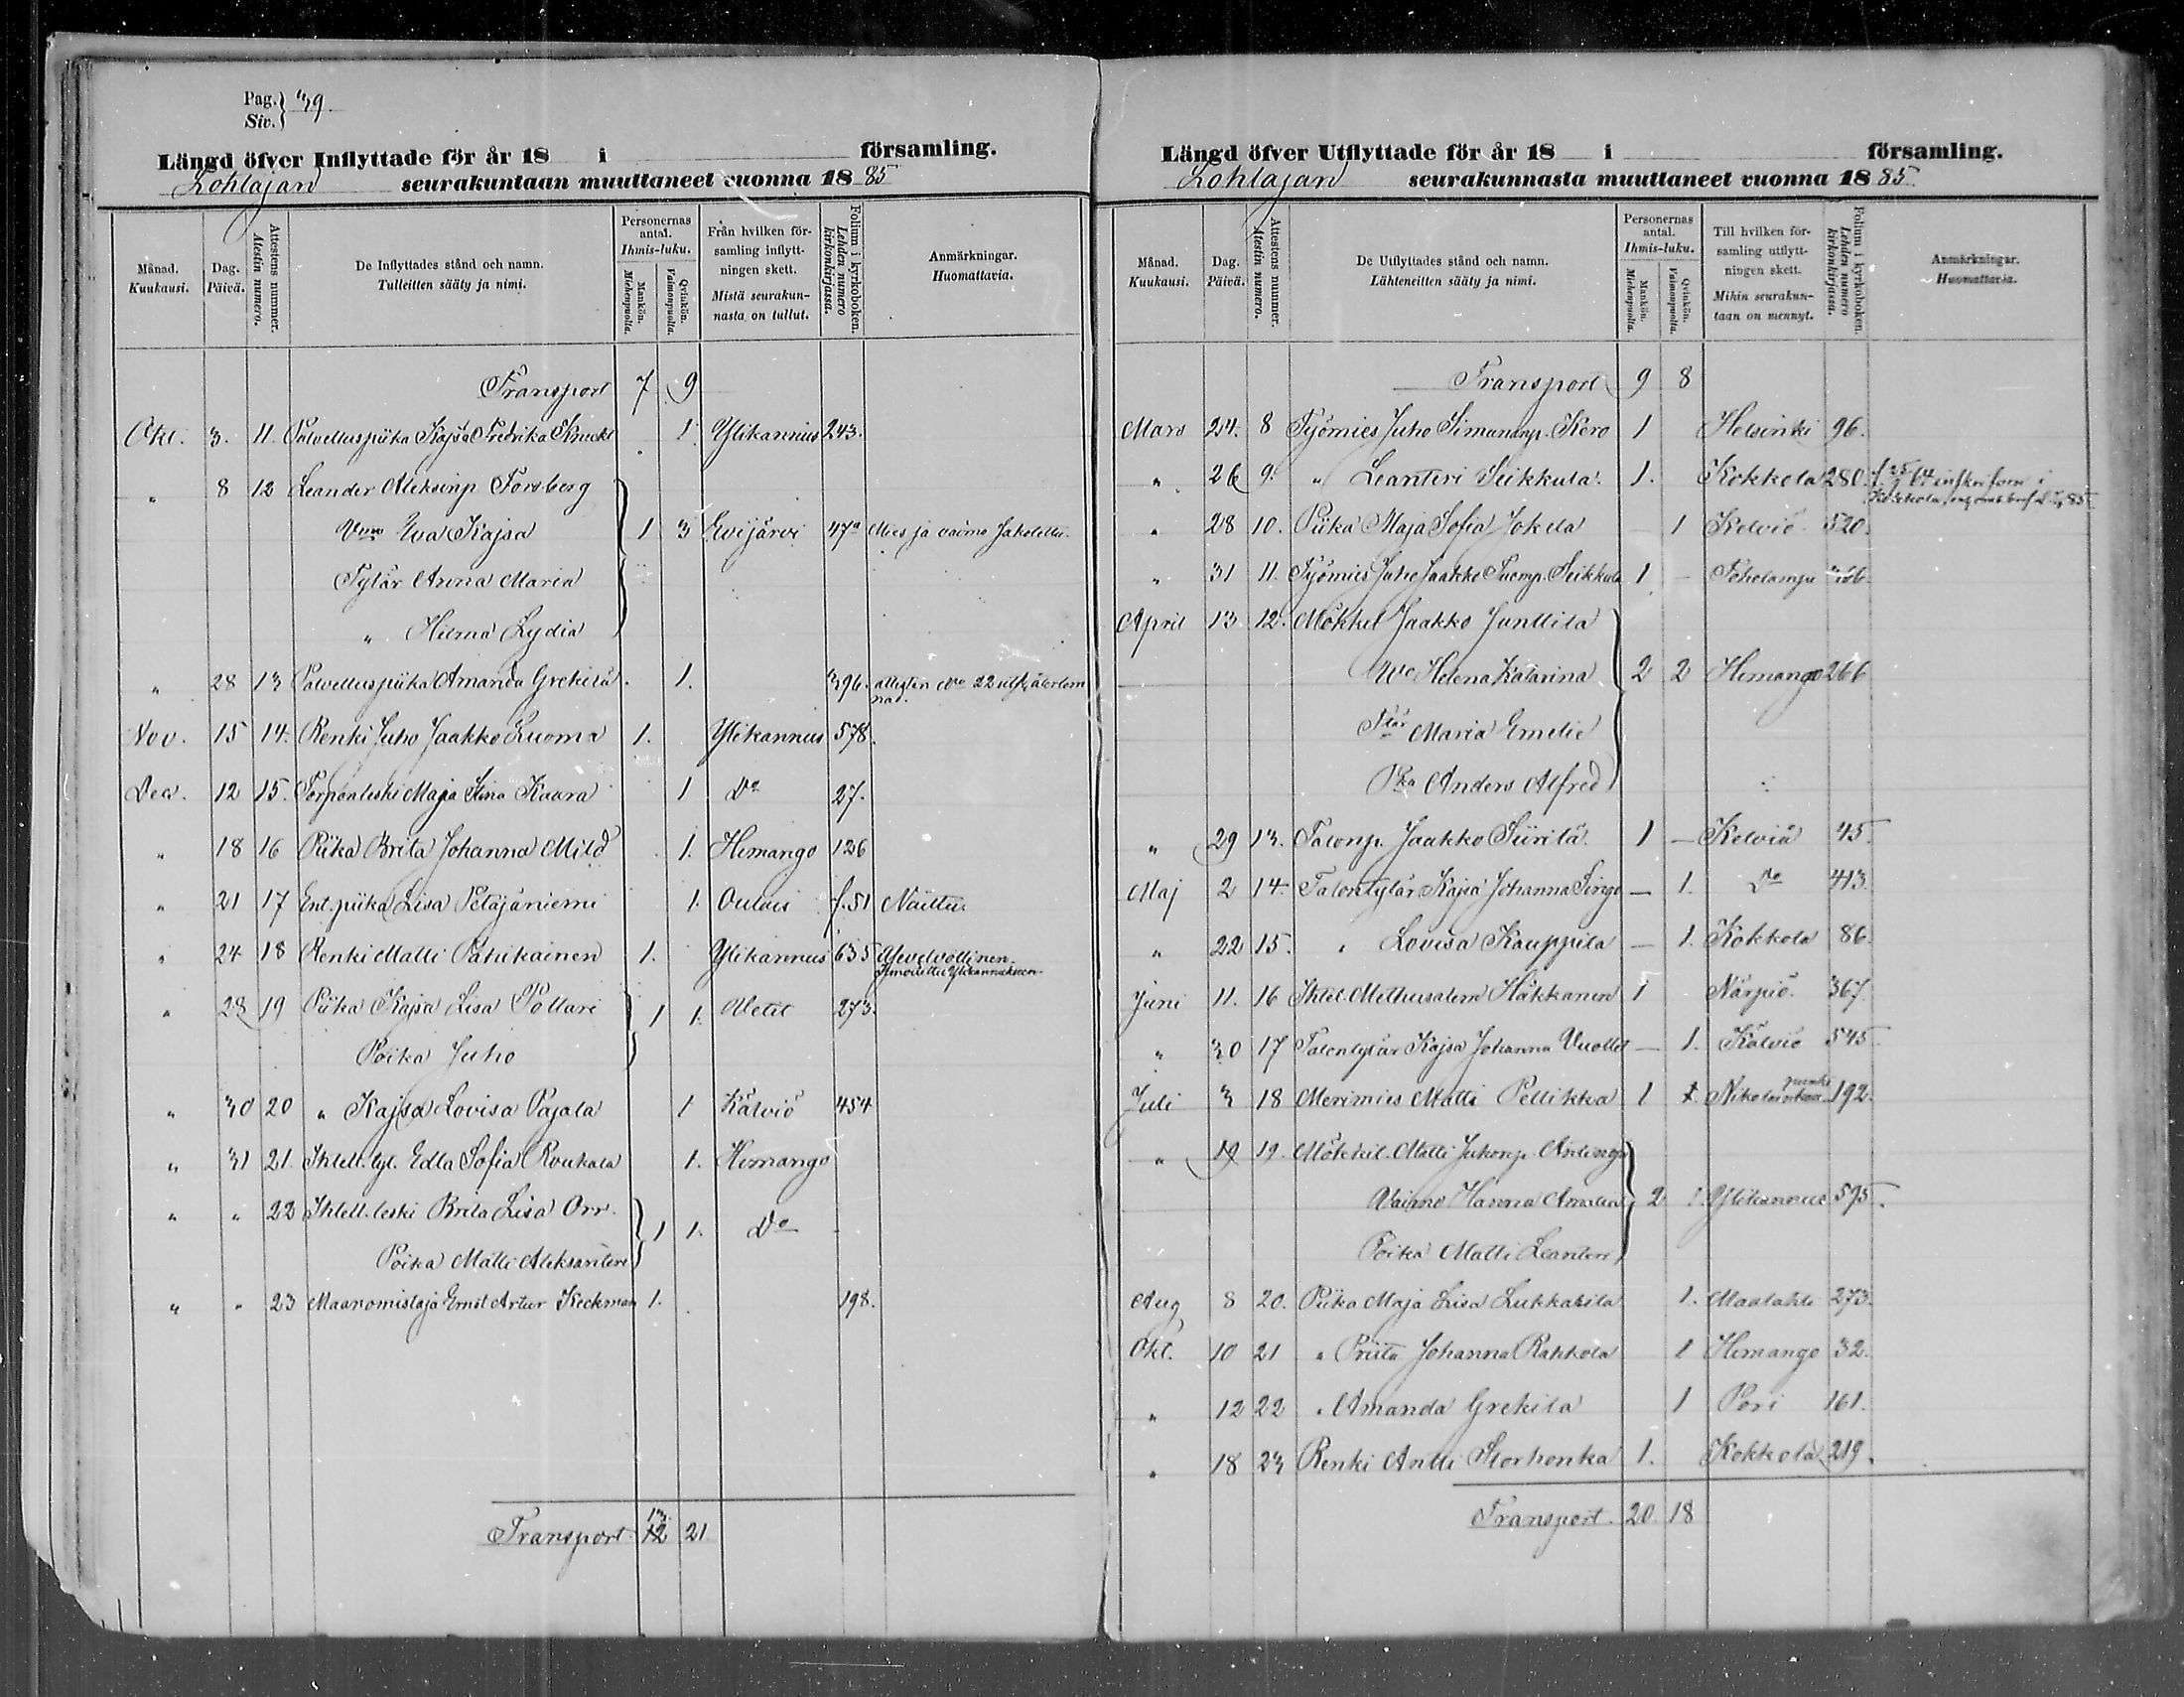 Pag. Siv. 39.
Längd öfver Inflyttade för år 18 i församling.
Lohtajan seurakuntaan muuttaneet vuonna 1885
Månad. Kuukausi.
Dag. Päivä.
Attestens nummer. Atestin numero.
De Inflyttades stånd och namn. Tulleitten sääty ja nimi.
Personernas antal. Ihmis-luku.
Mankön. Miehenpuolta.
Qvinkön. Vaimonpuolta.
Från hvilken församling inflyttningen skett. Mistä seurakunnasta on tullut.
Folium i kyrkoboken. Lehden numero kirkonkirjassa.
Anmärkningar. Huomattavia.
Transport 7 9
Okt. 3. 11. Palvelluspiika Kajsa Fredrika 1 Ylikannus 243.
" 8 12 Leander Aleksinp Forsberg
Vmo Eva Kajsa 1 3 Evijärvi 47a Mies ja vaimo
Tytär Anna Maria
" Hilma Lydia
" 28 13 Palvelluspiika Amanda Grekilä 1. 396. attesten No 22
Nov. 15 14. Renki Juho Jaakko Luoma 1. Ylikannus 578.
Dec. 12 15. Torpanleski Maja Stina Kaara 1 Do 27.
" 18 16 Piika Brita Johanna Mild 1. Himango 126
" 21 17 Ent. piika Lisa Petäjäniemi 1. Oulais f. 51 Naittu.
" 24 18 Renki Matti Pahikainen 1. Ylikannus 635
" 28 19 Piika Kajsa Lisa Pollari 1 1. Vetil 273.
Poika Juho
" 30 20 " Kajsa Lovisa Pajala 1 Kälviö 454
" 31 21. Ihtell. tyt. Edla Sofia Roukala 1. Himango
" " 22 Ihtell. leski Brita Lisa Orr. 1 1. Do
Poika Matti Aleksanteri
" " 23 Maanomistaja Ernst Artur Keckman 1. 198.
Transport 12 13 21
Längd öfver Utflyttade för år 18 i församling.
Lohtajan seurakunnasta muuttaneet vuonna 1885.
Månad. Kuukausi.
Dag. Päivä.
Attestens nummer. Atestin numero.
De Utflyttades stånd och namn. Lähteneitten sääty ja nimi.
Personernas antal. Ihmis-luku.
Mankön. Miehenpuolta.
Qvinkön. Vaimonpuolta.
Till hvilken församling utflyttningen skett. Mihin seurakuntaan on mennyt.
Folium i kyrkoboken. Lehden numero kirkonkirjassa.
Anmärkningar. Huomattavia.
Transport 9 8
Mars 24. 8 Työmies Juho Simananp. Kero 1 Helsinki 96.
" 26 9. " Leanteri Seikkula. 1. Kokkola 280.
" 28 10. Piika Maja Sofia Jokela 1 Kelviö 520.
" 31 11. Työmies Juho Jaakko Tuomp. Seikkula 1 - Toholampi
April 13. 12. Mökkil Jaakko Junttila
Vmo Helena Katarina 2 2 Himango 266
Ttär Maria Emelie
Pka Anders Alfred
" 29 13. Talonp. Jaakko Siirilä. 1 — Kelviä 45.
Maj 2 14. Talontytär Kajsa Johanna — 1. Do 413.
" 22 15. " Lovisa Kauppila — 1. Kokkola 86.
Juni 11. 16 Ihtel. Methusalem Häkkanen 1 Närpiö. 367.
" 30 17 Talontytär Kajsa Johanna Vuollet — 1. Kälviö 545.
Juli 3 18 Merimies Matti Pellikka 1 1. 192.
" 19 19. Mökkil. Matti Juhonp.
Vaimo Hanna Amalia 2 1. Ylikannus 595.
Poika Matti Leanteri
Aug 8 20. Piika Maja Lisa Lukkarila 1. Maalahti 273.
Okt. 10 21 " Priita Johanna Rahkola 1 Himango 32.
" 12 22 " Amanda Grekila 1 Pori 161.
" 18 23 Renki Antti Storhonka 1. Kokkola 219.
Transport. 20. 18